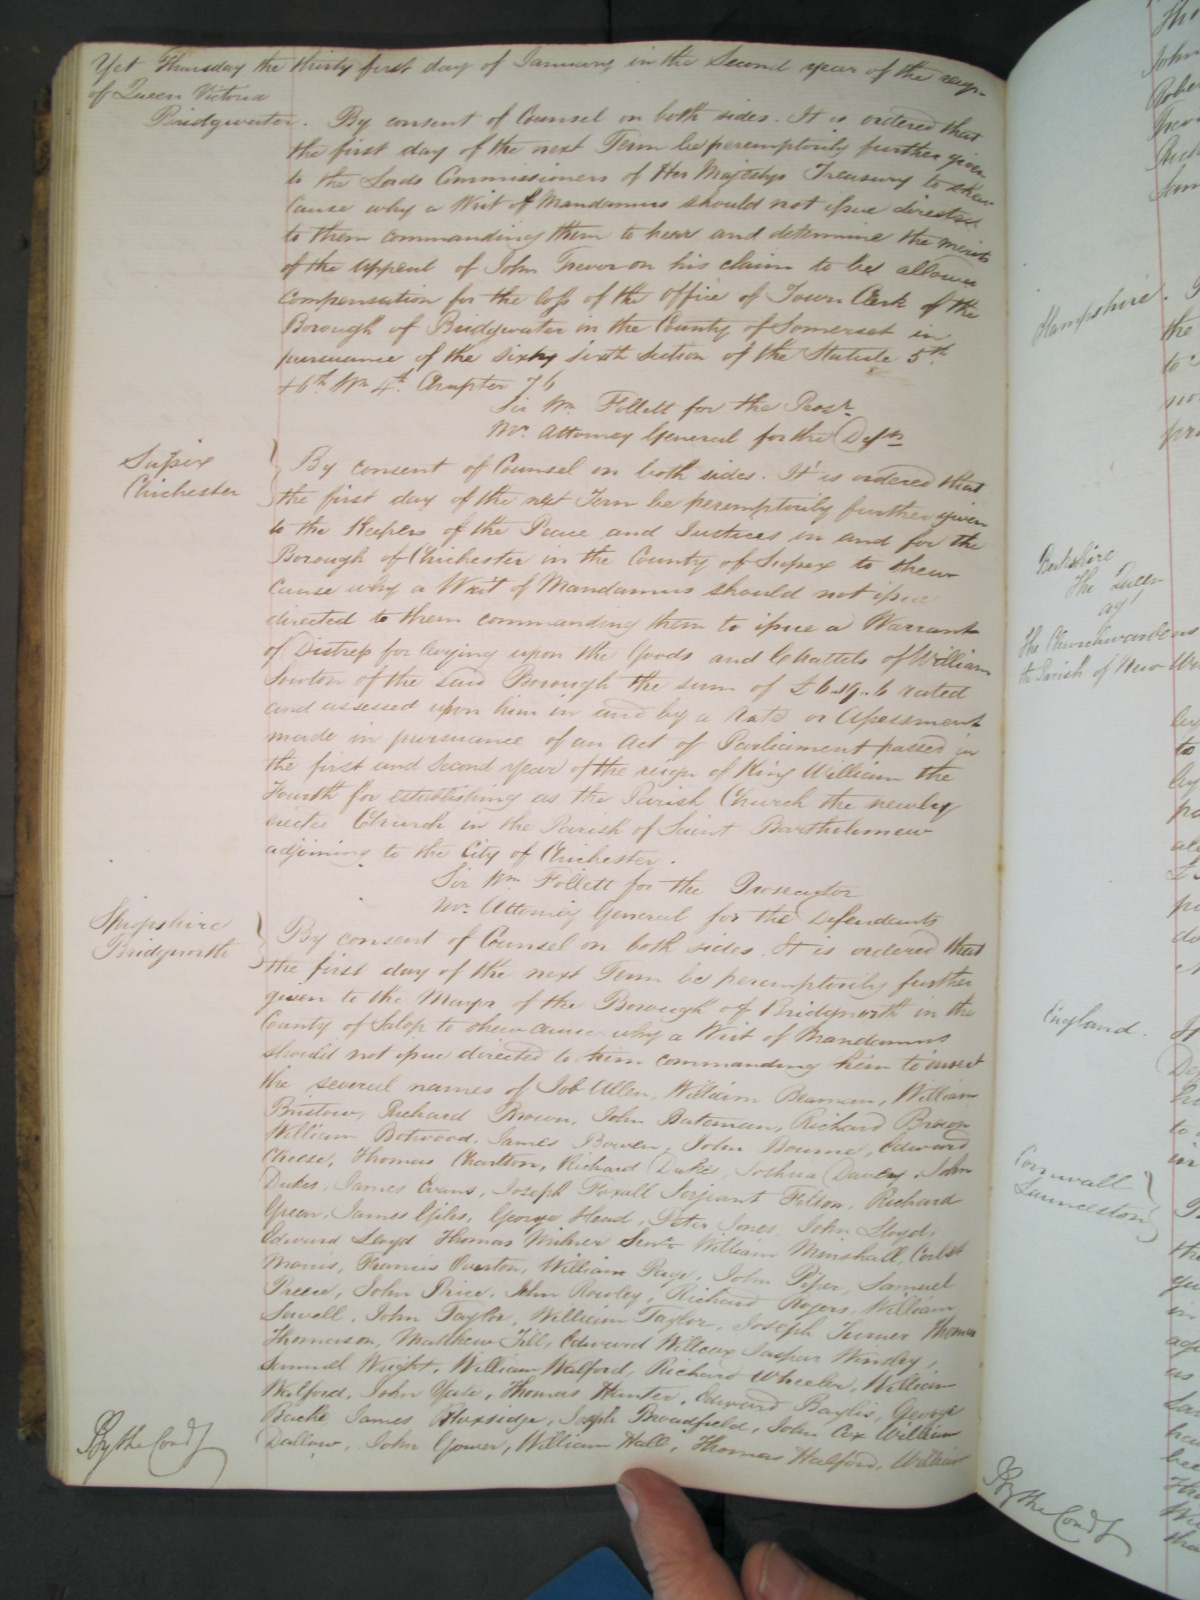 Yet Thursday the thirty first day of January in the Second year of the reign
of Queen Victoria
Bridgwater. By consent of Counsel on both sides. It is ordered that
the first day of the next Term be peremptorily further given
to the Lords Commissioners of Her Majestys Treasury to shew
Cause why a Writ of Mandamus should not issue directed
to them commanding them to hear and determine the merits
of the appeal of John Trevor on his claim to be allowed
Compensation for the loss of the office of Town Clerk of the
Borough of Bridgwater in the County of Somerset in
pursuance of the sixty sixth section of the Statute 5th
& 6th Wm 4th Chapter 76
Sir Wm Follett for the Prosr
Mr Attorney General for the Defts
Sussex
Chichester
By consent of Counsel on both sides. It is ordered that
the first day of the next Term be peremptorily further given
to the Keepers of the Peace and Justices in and for the
Borough of Chichester in the County of Sussex to shew
Cause why a Writ of Mandamus should not issue
directed to them commanding them to issue a Warrant
of Distress for levying upon the Goods and Chattels of William
Sowton of the said Borough the sum of £6.19.6 rated
and assessed upon him in and by a Rate or Assessment
made in pursuance of an Act of Parliament passed in
the first and Second year of the reign of King William the
Fourth for establishing as the Parish Church the newly
erected Church in the Parish of Saint Bartholomew
adjoining to the City of Chichester.
Sir Wm Follett for the Prosecutor
Mr Attorney General for the Defendants
Shropshire
Bridgnorth
By consent of Counsel on both sides. It is ordered that
the first day of the next Term be peremptorily further
given to the Mayor of the Borough of Bridgnorth in the
County of Salop to shew cause why a Writ of Mandamus
should not issue directed to him commanding him to insert
the several names of Job Allen, William Beaman, William
Bristow, Richard Brown, John Bateman, Richard Brown
William Botwood, James Bowen, John Bourne, Edward
Cheese, Thomas Charlton, Richard Dukes, Joshua Davey, John
Dukes, James Evans, Joseph Foxall Serjeant Felton, Richard
Green, James Giles, George Head, Peter Jones, John Lloyd,
Edward Lloyd Thomas Milner Senr William Minshall,
Morris, Francis Overton, William Page, John Piper, Samuel
Preece, John Price, John Rowley, Richard Rogers, William
Sewell, John Taylor, William Taylor, Joseph Turner Thomas
Thomason, Matthew Till, Edward Willcox Jaspar Winsley,
Samuel Wright, William Walford, Richard Wheeler, William
Walford, John Yate, Thomas Hunter, Edward Baylis, George
Bache James Bloxsidge, Joseph Broadfield, John Cox William
Dallow, John Gower, William Hall, Thomas Halford, William
By the Court
Hampshire.
Berkshire
The Queen
agt
The Churchwardens
the Parish of New
England.
Cornwall
Launceston
By the Court